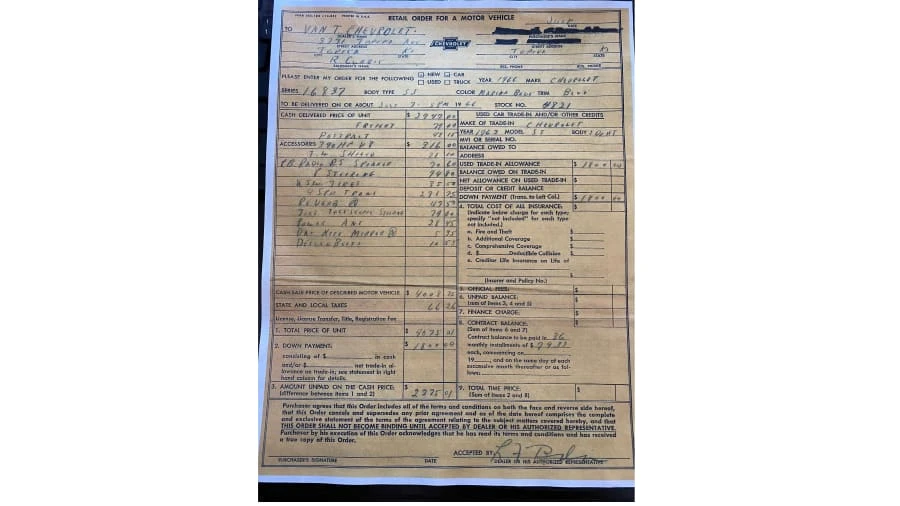 RETAIL ORDER FOR A MOTOR VEHICLE
TO VAN T CHEVROLET
DEALER'S NAME
CHEVROLET
PURCHASER'S NAME
STREET ADDRESS STREET ADDRESS
TOPEKA Ks TOPEKA Ks
CITY STATE CITY STATE
SALESMAN'S NAME RES. PHONE BUS. PHONE
PLEASE ENTER MY ORDER FOR THE FOLLOWING NEW CAR YEAR 1966 MAKE CHEVROLET
USED TRUCK
SERIES 16837 BODY TYPE SS COLOR MARINA BLUE TRIM BLUE
TO BE DELIVERED ON OR ABOUT 1966 STOCK NO. 4821
CASH DELIVERED PRICE OF UNIT $ 2947 00
FREIGHT
ACCESSORIES 396 HP V8 $ 316 00
P STEERING
WSW TIRES
4 SPD TRANS
REVERB
TILT TELESCOPE
POWER ANT
DAY NITE MIRROR
DELUXE BELTS
CASH SALE PRICE OF DESCRIBED MOTOR VEHICLE $ 4008 75
STATE AND LOCAL TAXES 66 26
License, License Transfer, Title, Registration Fee
1. TOTAL PRICE OF UNIT $ 4075 01
2. DOWN PAYMENT: $ 1800 00
consisting of $ in cash
and/or $ net trade-in al-
lowance on trade-in; see statement in right
hand column for details.
3. AMOUNT UNPAID ON THE CASH PRICE: $ 2275 01
(difference between items 1 and 2)
USED CAR TRADE-IN AND/OR OTHER CREDITS
MAKE OF TRADE-IN CHEVROLET
YEAR 1963 MODEL SS BODY
MVI OR SERIAL NO.
BALANCE OWED TO
ADDRESS
USED TRADE-IN ALLOWANCE $ 1800 00
BALANCE OWED ON TRADE-IN
NET ALLOWANCE ON USED TRADE-IN $
DEPOSIT OR CREDIT BALANCE
DOWN PAYMENT (Trans. to Left Col.) $ 1800 00
4. TOTAL COST OF ALL INSURANCE: $
(Indicate below charge for each type;
specify "not included" for each type
not included.)
a. Fire and Theft $
b. Additional Coverage $
c. Comprehensive Coverage $
d. $ Deductible Collision $
e. Creditor Life Insurance on Life of
$
(Insurer and Policy No.)
5. OFFICIAL FEES: $
6. UNPAID BALANCE: $
(sum of items 3, 4 and 5)
7. FINANCE CHARGE: $
8. CONTRACT BALANCE: $
(Sum of items 6 and 7)
Contract balance to be paid in 36
monthly installments of $
each, commencing on
19 , and on the same day of each
successive month thereafter or as fol-
lows:
9. TOTAL TIME PRICE: $
(Sum of items 2 and 8)
Purchaser agrees that this Order includes all of the terms and conditions on both the face and reverse side hereof,
that this Order cancels and supersedes any prior agreement and as of the date hereof comprises the complete
and exclusive statement of the terms of the agreement relating to the subject matters covered hereby, and that
THIS ORDER SHALL NOT BECOME BINDING UNTIL ACCEPTED BY DEALER OR HIS AUTHORIZED REPRESENTATIVE.
Purchaser by his execution of this Order acknowledges that he has read its terms and conditions and has received
a true copy of this Order.
ACCEPTED BY
PURCHASER'S SIGNATURE DATE DEALER OR HIS AUTHORIZED REPRESENTATIVE